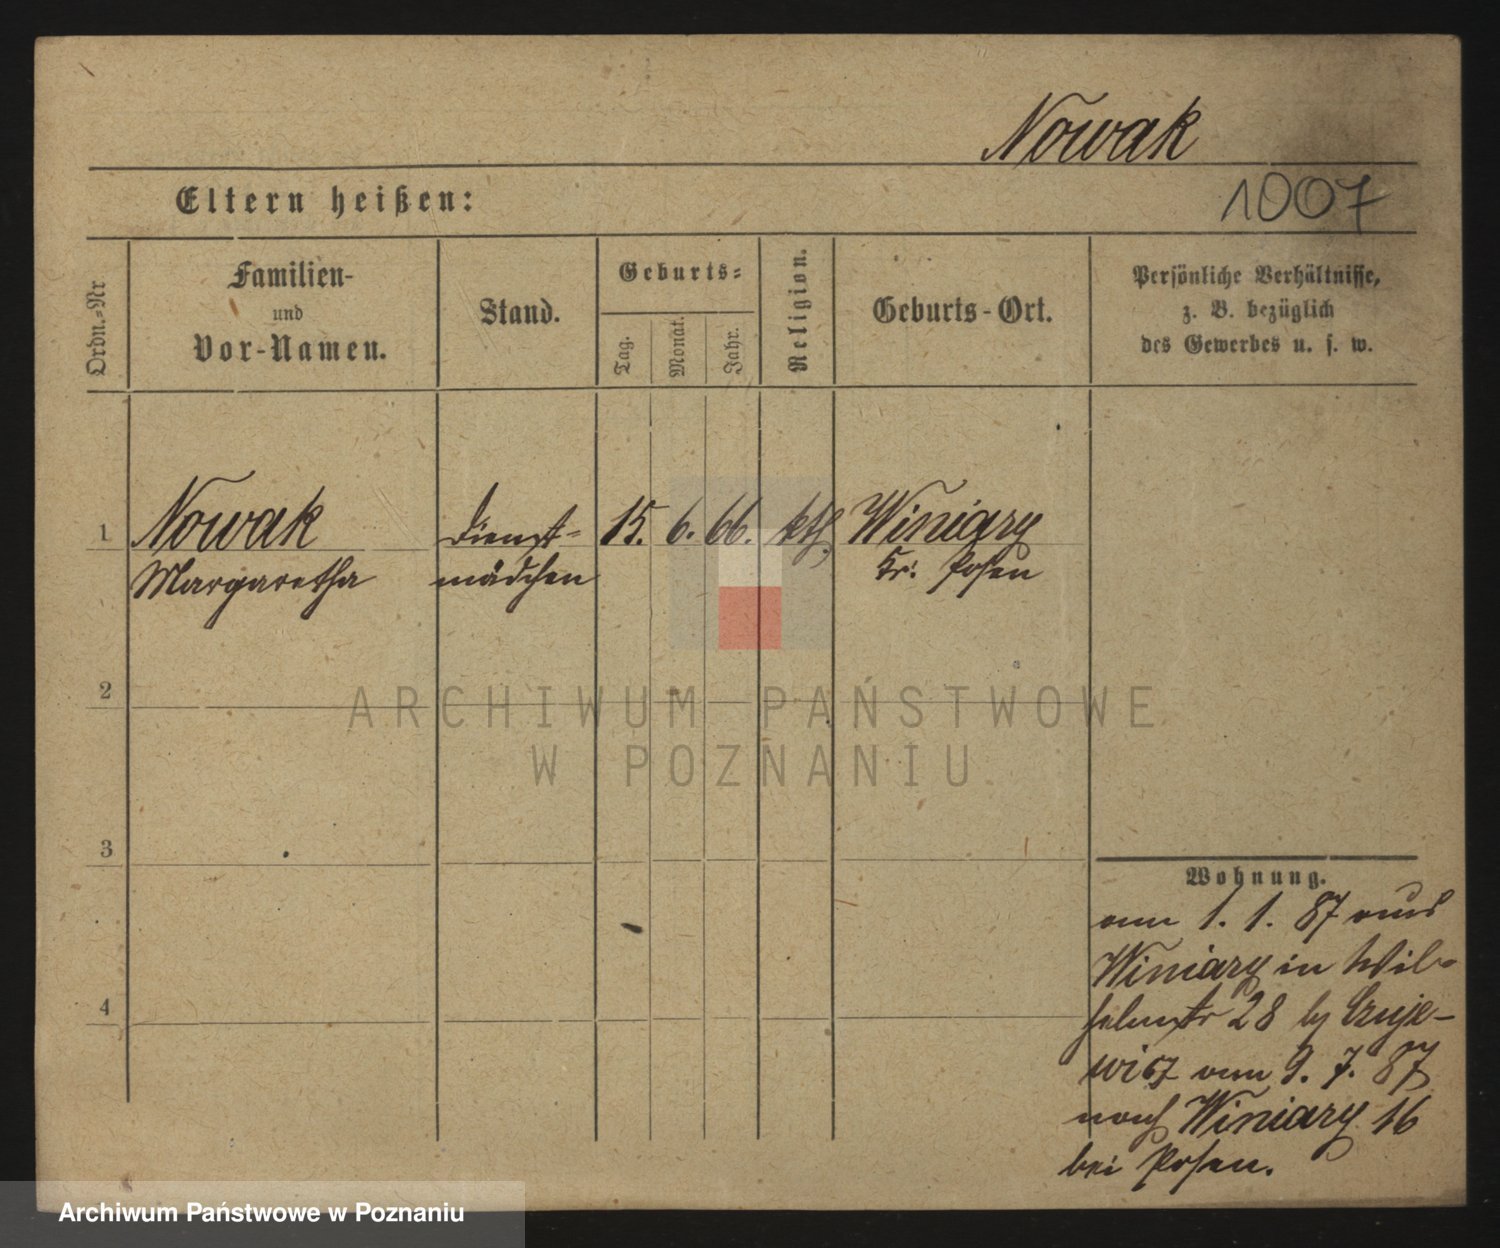 Nowak
Eltern heißen:
1007
Ordn.-Nr
Familien-
und
Vor-Namen.
Stand.
Geburts-
Tag.
Monat.
Jahr.
Religion.
Geburts-Ort.
Persönliche Verhältnisse,
z. B. bezüglich
des Gewerbes u. s. w.
1
Nowak
Margaretha
Dienst-
mädchen
15. 6. 66.
kth.
Winiary
Kr. Posen
2
3
4
Wohnung.
am 1. 1. 87 aus
Winiary in Wil-
helmstr 28 by
am 9. 7. 87
nach Winiary 16
bei Posen.
ARCHIWUM PAŃSTWOWE
W POZNANIU
Archiwum Państwowe w Poznaniu